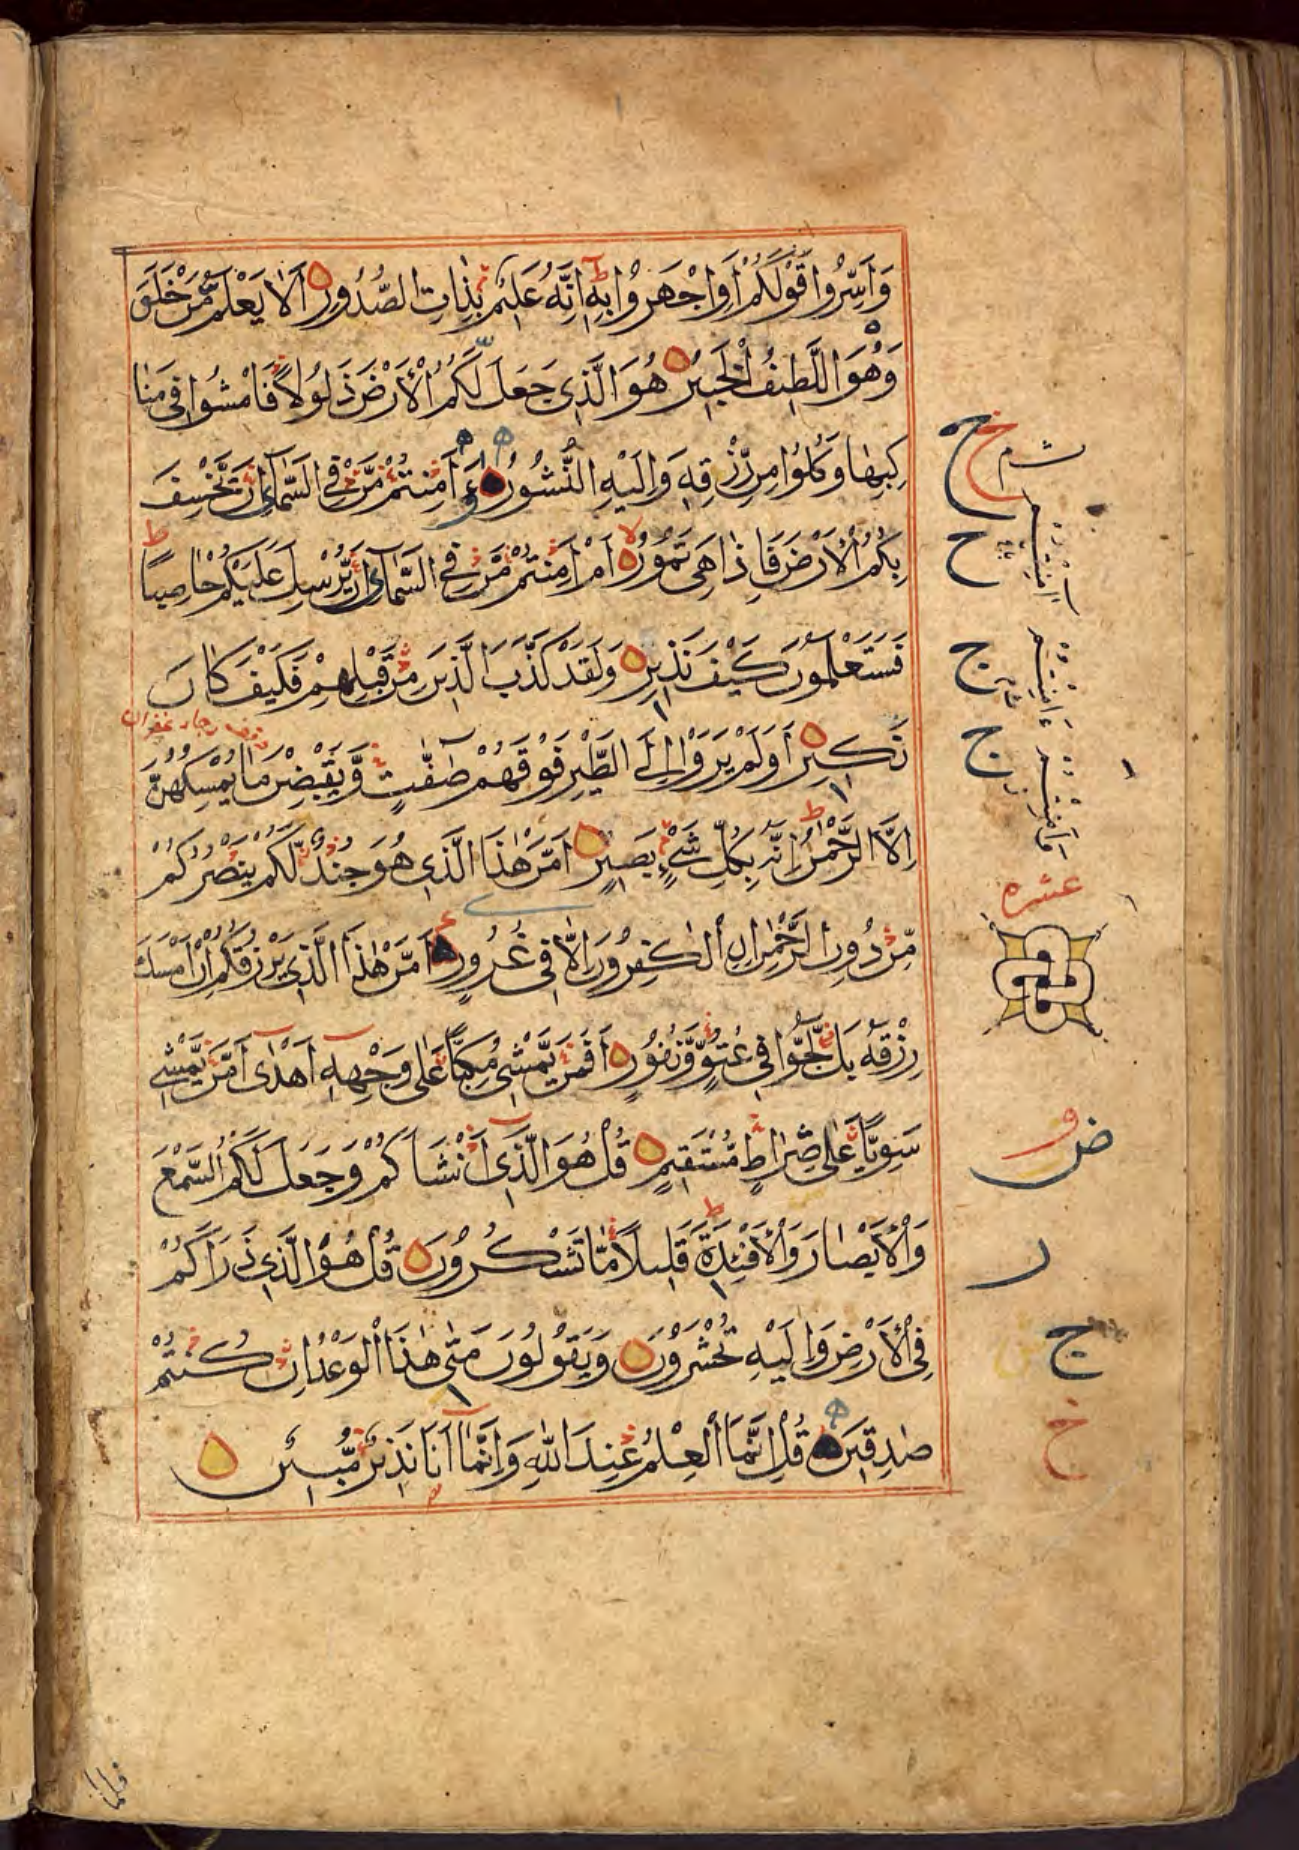 وَاَسِرُّوا قَوْلَكُمْ اَوِ اجْهَرُوْا بِهٖ اِنَّهٗ عَلِيْمٌ بِذَاتِ الصُّدُوْرِ اَلَا يَعْلَمُ مَنْ خَلَقَ
وَهُوَ اللَّطِيْفُ الْخَبِيْرُ هُوَ الَّذِيْ جَعَلَ لَكُمُ الْاَرْضَ ذَلُوْلًا فَامْشُوْا فِيْ مَنَا
كِبِهَا وَكُلُوْا مِنْ رِّزْقِهٖ وَاِلَيْهِ النُّشُوْرُ ءَاَمِنْتُمْ مَّنْ فِي السَّمَآءِ اَنْ يَّخْسِفَ
بِكُمُ الْاَرْضَ فَاِذَا هِيَ تَمُوْرُ اَمْ اَمِنْتُمْ مَّنْ فِي السَّمَآءِ اَنْ يُّرْسِلَ عَلَيْكُمْ حَاصِبًا
فَسَتَعْلَمُوْنَ كَيْفَ نَذِيْرِ وَلَقَدْ كَذَّبَ الَّذِيْنَ مِنْ قَبْلِهِمْ فَكَيْفَ كَانَ
نَكِيْرِ اَوَلَمْ يَرَوْا اِلَى الطَّيْرِ فَوْقَهُمْ صٰٓفّٰتٍ وَّيَقْبِضْنَ مَا يُمْسِكُهُنَّ
اِلَّا الرَّحْمٰنُ اِنَّهٗ بِكُلِّ شَيْءٍ بَصِيْرٌ اَمَّنْ هٰذَا الَّذِيْ هُوَ جُنْدٌ لَّكُمْ يَنْصُرُكُمْ
مِّنْ دُوْنِ الرَّحْمٰنِ اِنِ الْكٰفِرُوْنَ اِلَّا فِيْ غُرُوْرٍ اَمَّنْ هٰذَا الَّذِيْ يَرْزُقُكُمْ اِنْ اَمْسَكَ
رِزْقَهٗ بَلْ لَّجُّوْا فِيْ عُتُوٍّ وَّنُفُوْرٍ اَفَمَنْ يَّمْشِيْ مُكِبًّا عَلٰى وَجْهِهٖٓ اَهْدٰٓى اَمَّنْ يَّمْشِيْ
سَوِيًّا عَلٰى صِرَاطٍ مُّسْتَقِيْمٍ قُلْ هُوَ الَّذِيْٓ اَنْشَاَكُمْ وَجَعَلَ لَكُمُ السَّمْعَ
وَالْاَبْصَارَ وَالْاَفْئِدَةَ قَلِيْلًا مَّا تَشْكُرُوْنَ قُلْ هُوَ الَّذِيْ ذَرَاَكُمْ
فِي الْاَرْضِ وَاِلَيْهِ تُحْشَرُوْنَ وَيَقُوْلُوْنَ مَتٰى هٰذَا الْوَعْدُ اِنْ كُنْتُمْ
صٰدِقِيْنَ قُلْ اِنَّمَا الْعِلْمُ عِنْدَ اللّٰهِ وَاِنَّمَآ اَنَا نَذِيْرٌ مُّبِيْنٌ
عشره
فلما